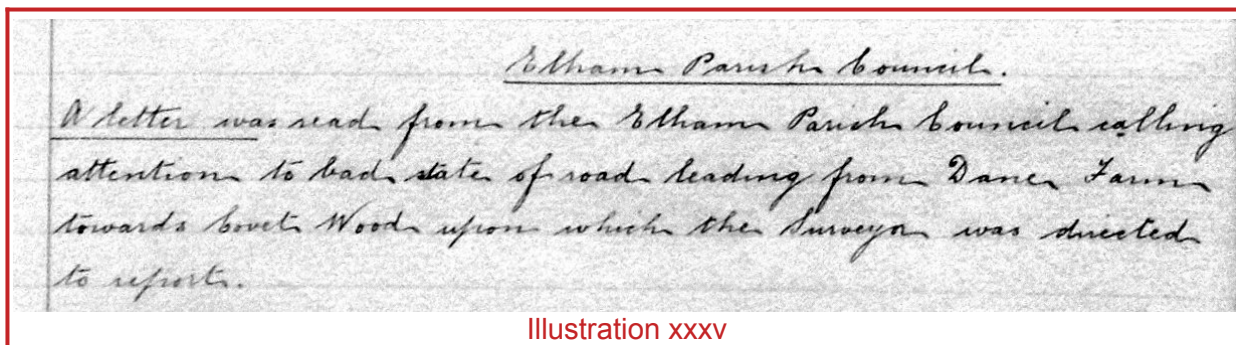 Elham Parish Council.
A letter was read from the Elham Parish Council calling
attention to bad state of road leading from Dane Farm
towards Covet Wood upon which the Surveyor was directed
to report.
Illustration xxxv